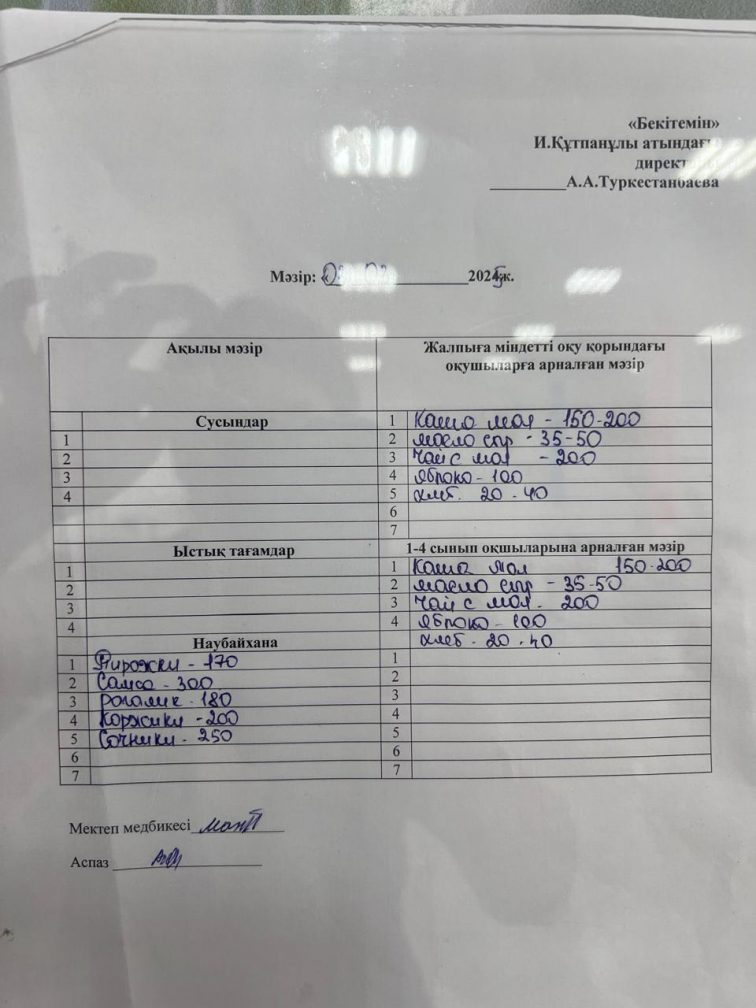 «Бекітемін»
И.Құтпанұлы атындағы
дирек
А.А.Туркестанбаева
Мәзір: « 2025ж.
Ақылы мәзір
Жалпыға міндетті оқу қорындағы
оқушыларға арналған мәзір
Сусындар
1
2
3
4
1 Каша мол - 150-200
2 масло спр - 35-50
3 Чай с мол - 200
4 Яблоко - 100
5 хлеб. 20 - 40
6
7
Ыстық тағамдар
1
2
3
4
1-4 сынып оқшыларына арналған мәзір
1 Каша мол 150-200
2 масло спр - 35-50
3 Чай с мол - 200
4 Яблоко - 100
хлеб - 20 - 40
Наубайхана
1 Пирожки - 170
2 Самса - 300
3 Рогалик - 180
4 Коржики - 200
5 Сочники - 250
6
7
1
2
3
4
5
6
7
Мектеп медбикесі
Аспаз